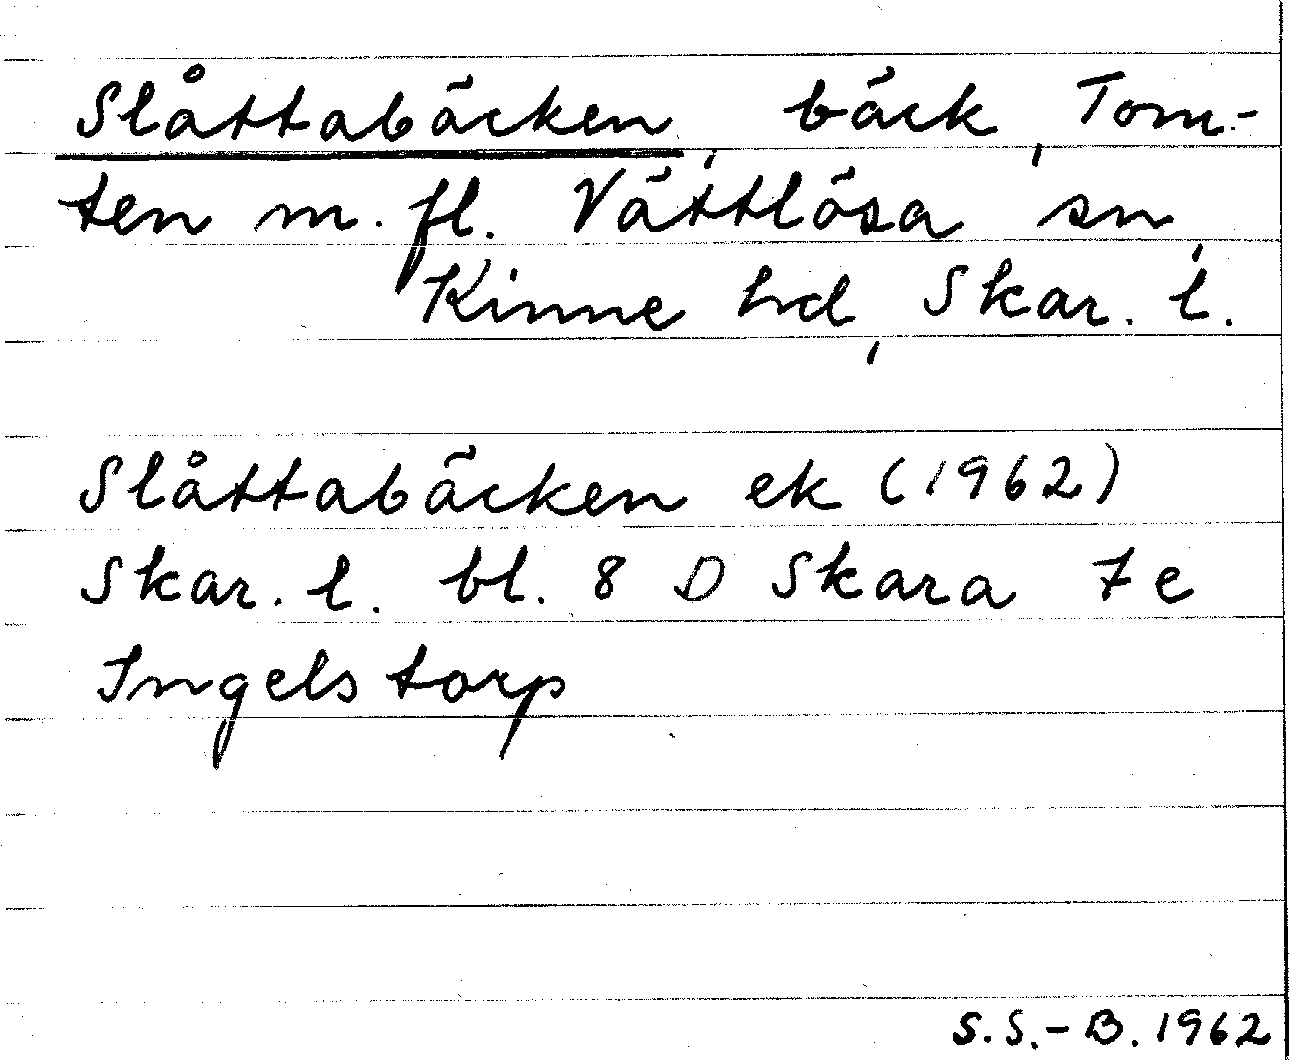 Slåttabäcken, bäck, Tom-
ten m. fl. Vättlösa sn,
Kinne hd, Skar. l.
Slåttabäcken ek (1962)
Skar. l. bl. 8 D Skara 7 e
Ingelstorp
S. S.-B. 1962